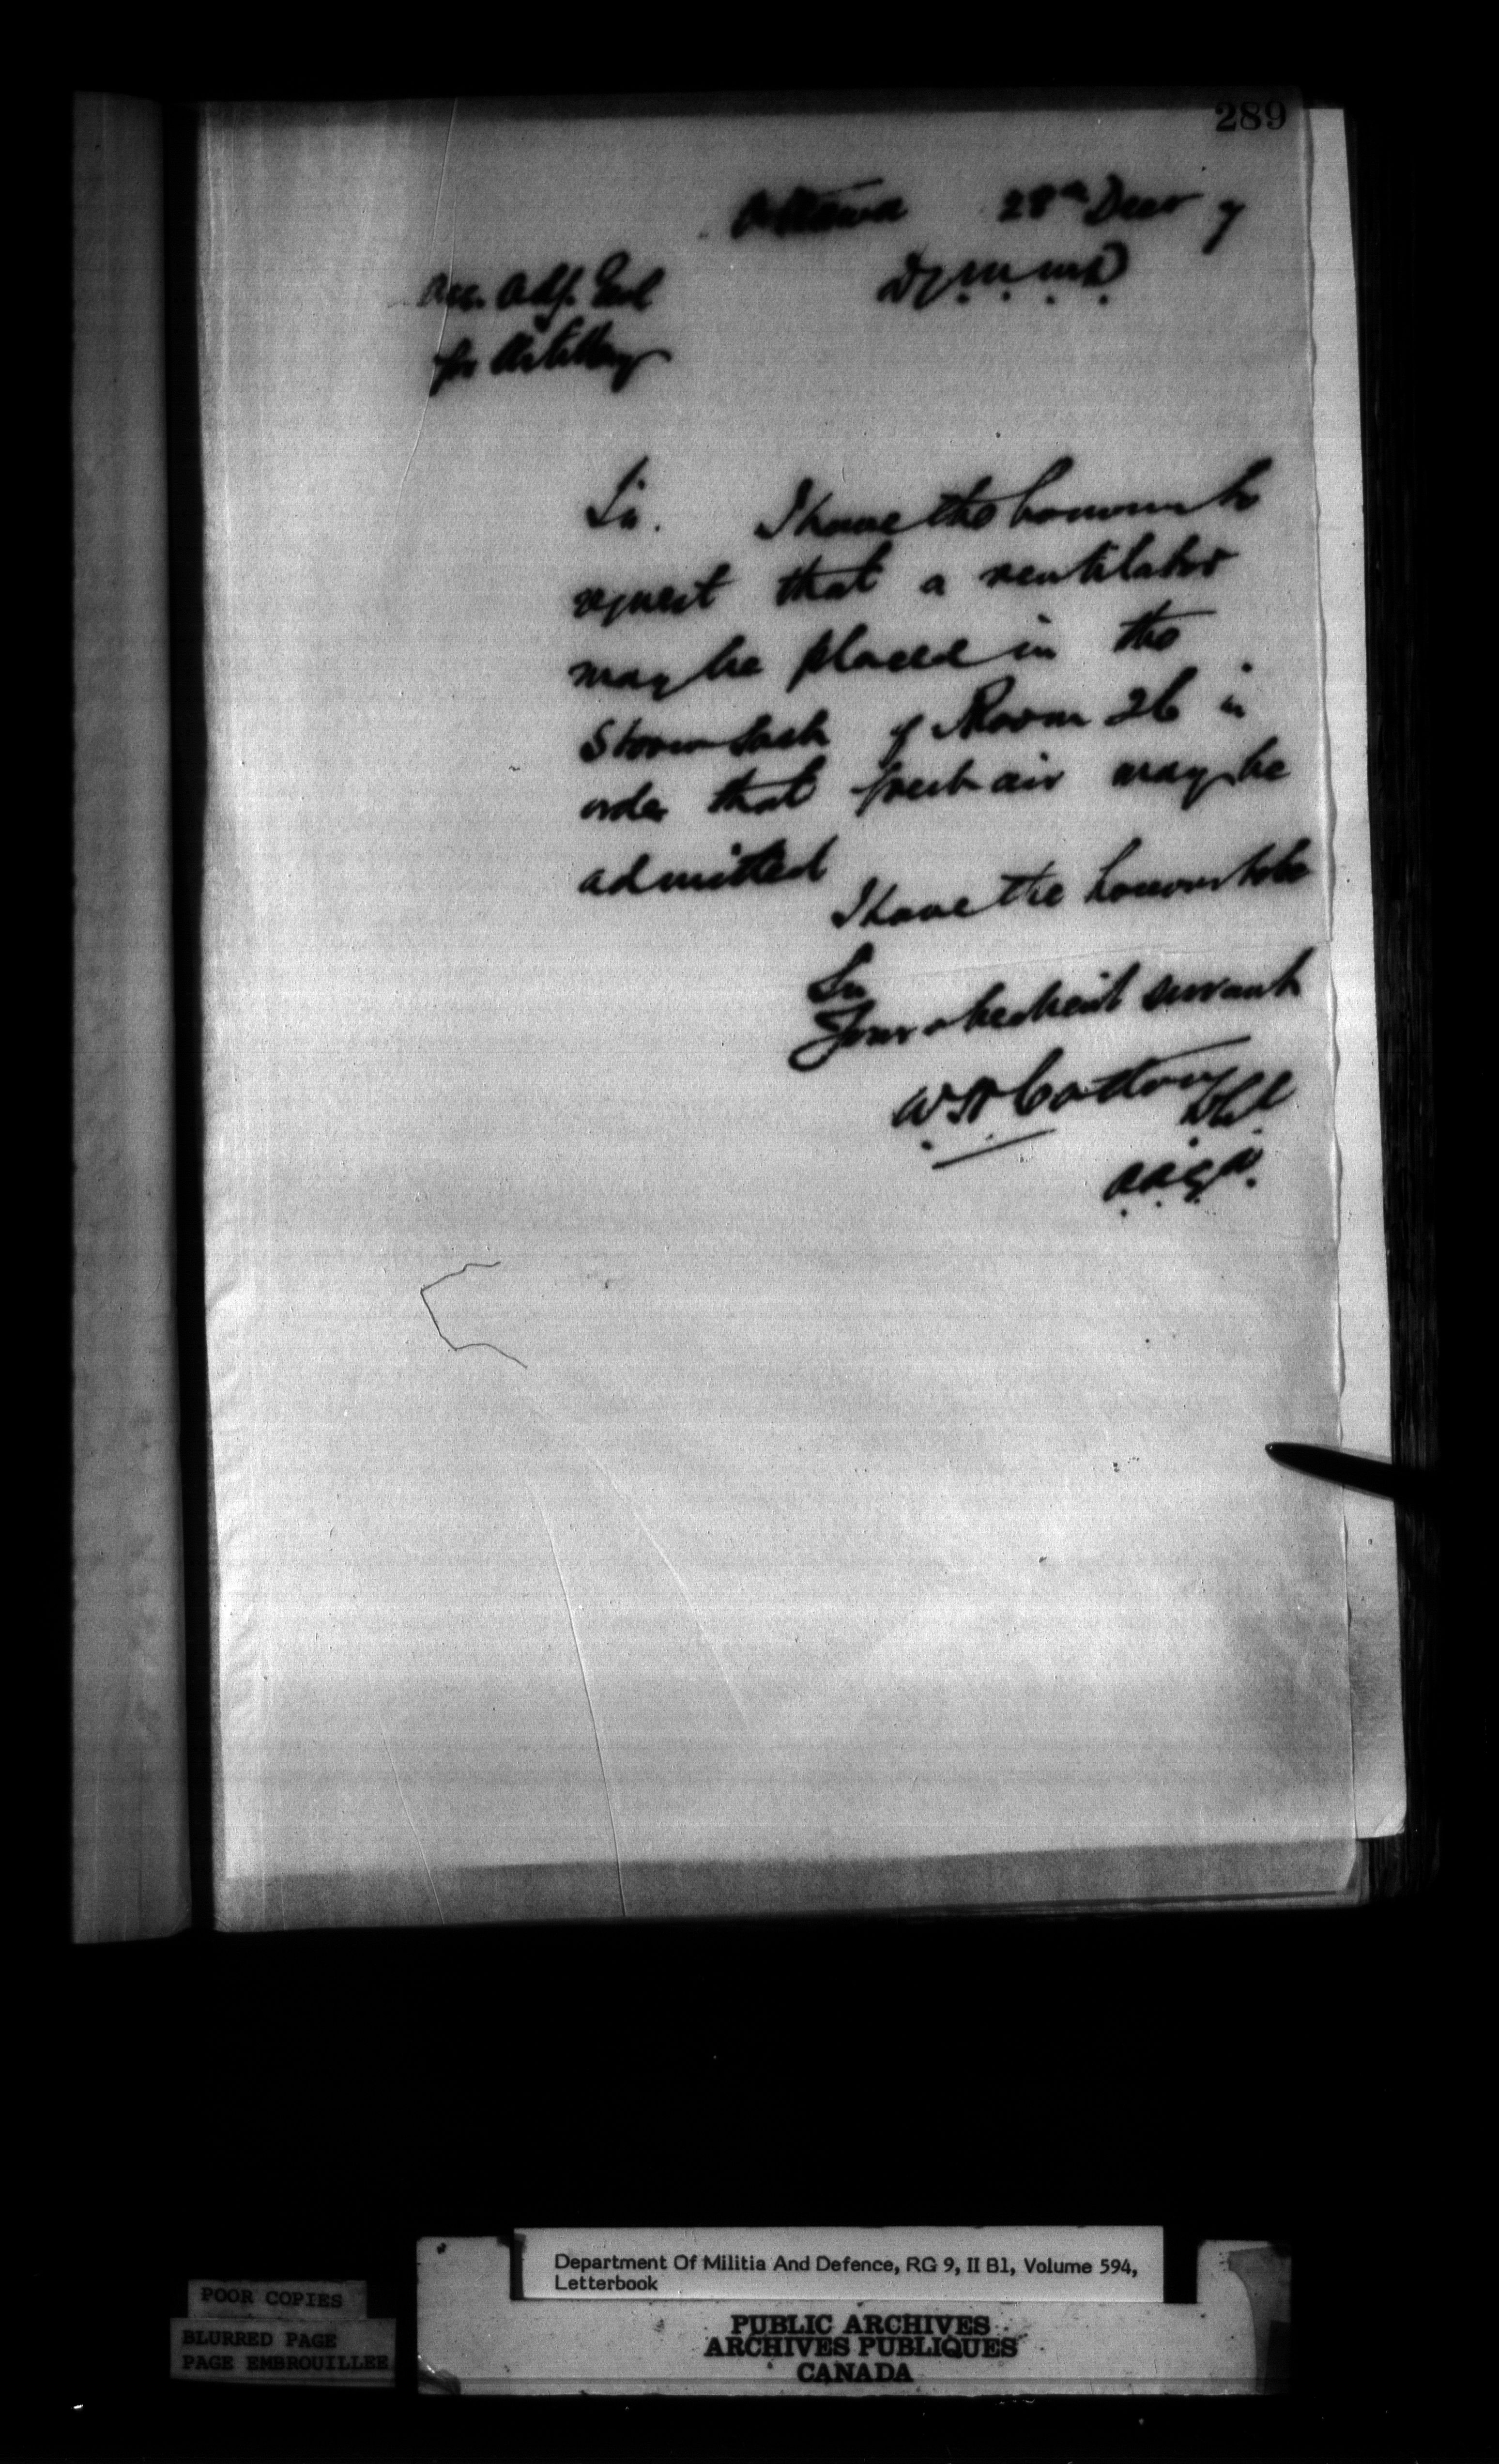 289
Ottawa 28th Decr 9
Ass. Adj. Genl
for Artillery
Sir. I have the honour to
request that a ventilator
may be placed in the
Storm Sash of Room 26 in
order that fresh air may be
admitted
I have the honour to be
Sir
Your obedient servant
W H Cotton
A.A.G.A.
Department Of Militia And Defence, RG 9, II B1, Volume 594,
Letterbook
POOR COPIES
BLURRED PAGE
PAGE EMBROUILLEE
PUBLIC ARCHIVES
ARCHIVES PUBLIQUES
CANADA